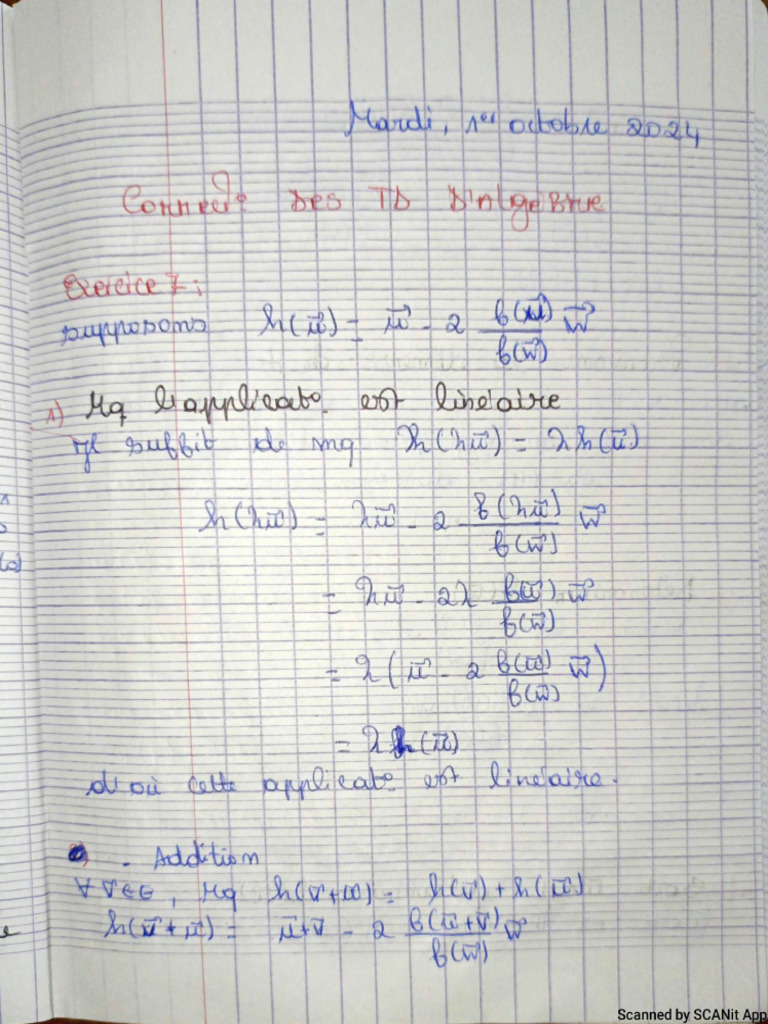 Mardi, 1er octobre 2024
Correct° Des TD D'Algèbre
Exercice 7 :
supposons h(u⃗) = u⃗ - 2 f(u⃗)/f(w⃗) w⃗
1) Mq l'applicat° est linéaire
Il suffit de mq h(λu⃗) = λh(u⃗)
h(λu⃗) = λu⃗ - 2 f(λu⃗)/f(w⃗) w⃗
= λu⃗ - 2λ f(u⃗)/f(w⃗) w⃗
= λ(u⃗ - 2 f(u⃗)/f(w⃗) w⃗)
= λh(u⃗)
d'où cette applicat° est linéaire.
. Addition
∀ v⃗∈E, Mq h(v⃗+u⃗) = h(v⃗) + h(u⃗)
h(v⃗+u⃗) = u⃗+v⃗ - 2 f(u⃗+v⃗)/f(w⃗) w⃗
Scanned by SCANit App